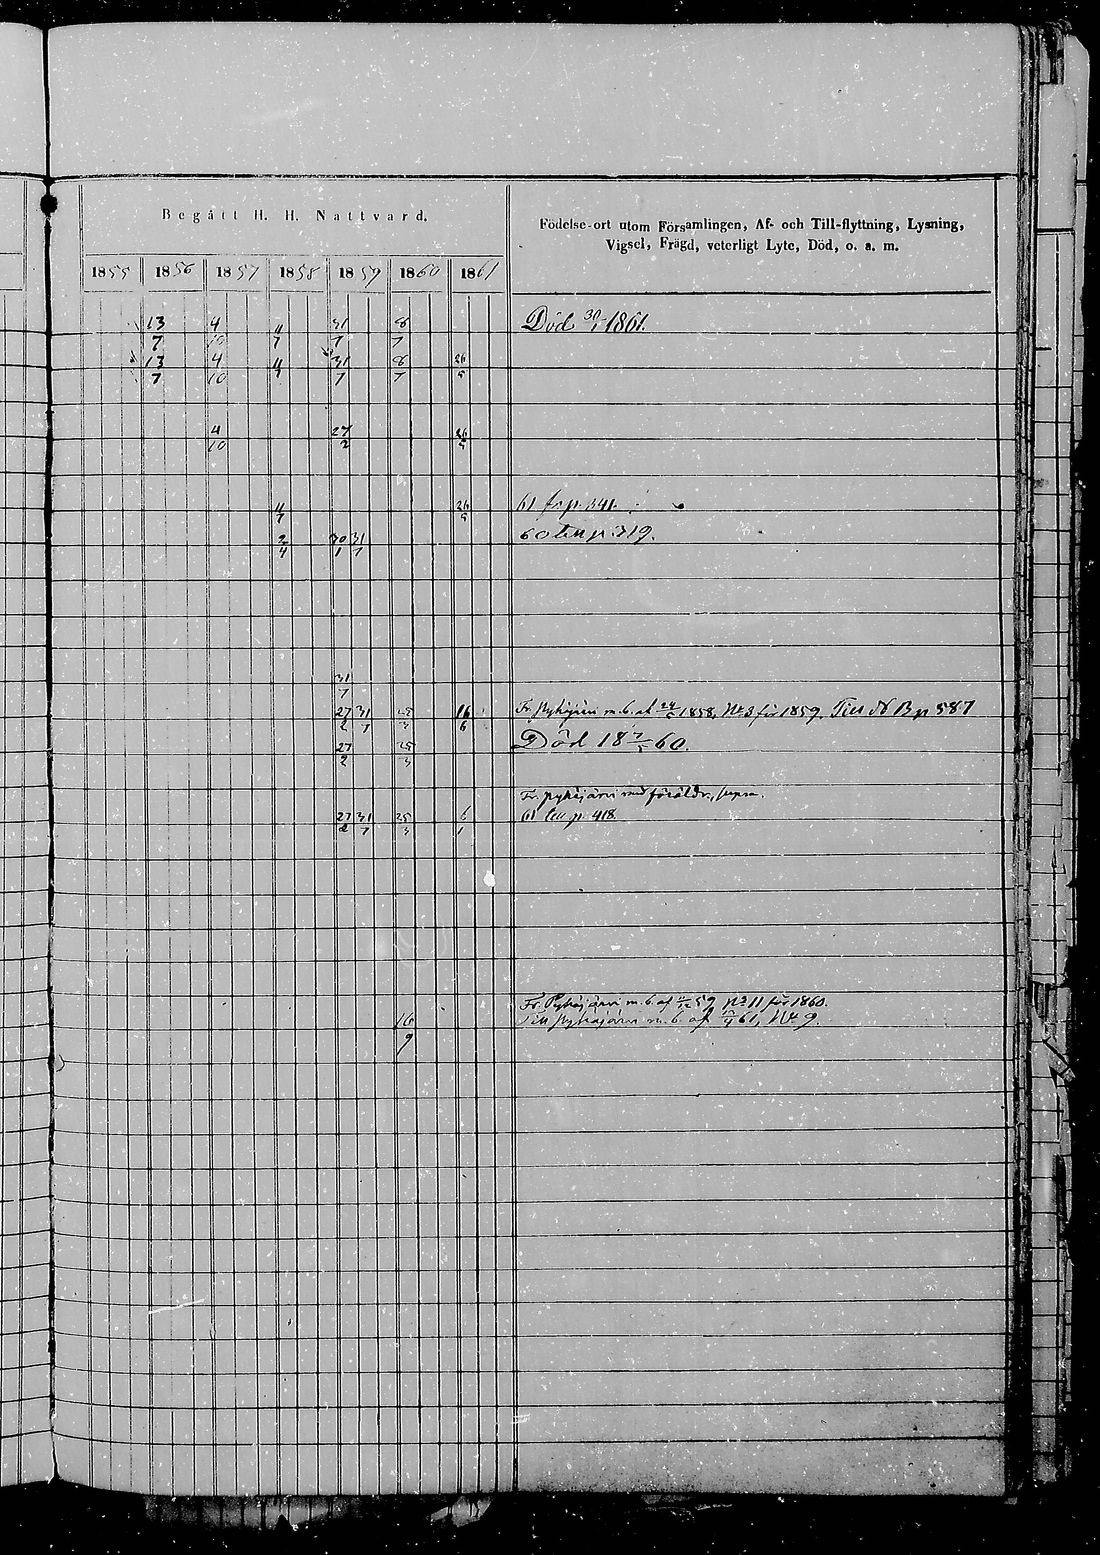 Begått H. H. Nattvard.
Födelse-ort utom Församlingen, Af- och Till-flyttning, Lysning,
Vigsel, Frägd, veterligt Lyte, Död, o. a. m.
1855 1856 1857 1858 1859 1860 1861
13/7 4/10 4/7 31/7 8/7 Död 30/1 1861.
13/7 4/10 4/7 31/7 8/7 26/5
4/10 27/2 26/5
4/7 26/5 61 fr p. 341.
2/4 30/1 31/7 60 till p 319.
31/7
27/2 31/7 25/3 16/6 Fr. Pyhäjärvi m.b. af 1858, No 3 för 1859. Till No B p 587
27/2 25/3 Död 18 7/5 60.
Fr. pyhäjärvi med föräldr., supra.
27/2 31/7 25/3 6/1 61 till p. 418
Fr. Pyhäjärvi m.b. af 59 No 11 för 1860.
16/9 Till Pyhäjärvi m.b. af 61, No 9.